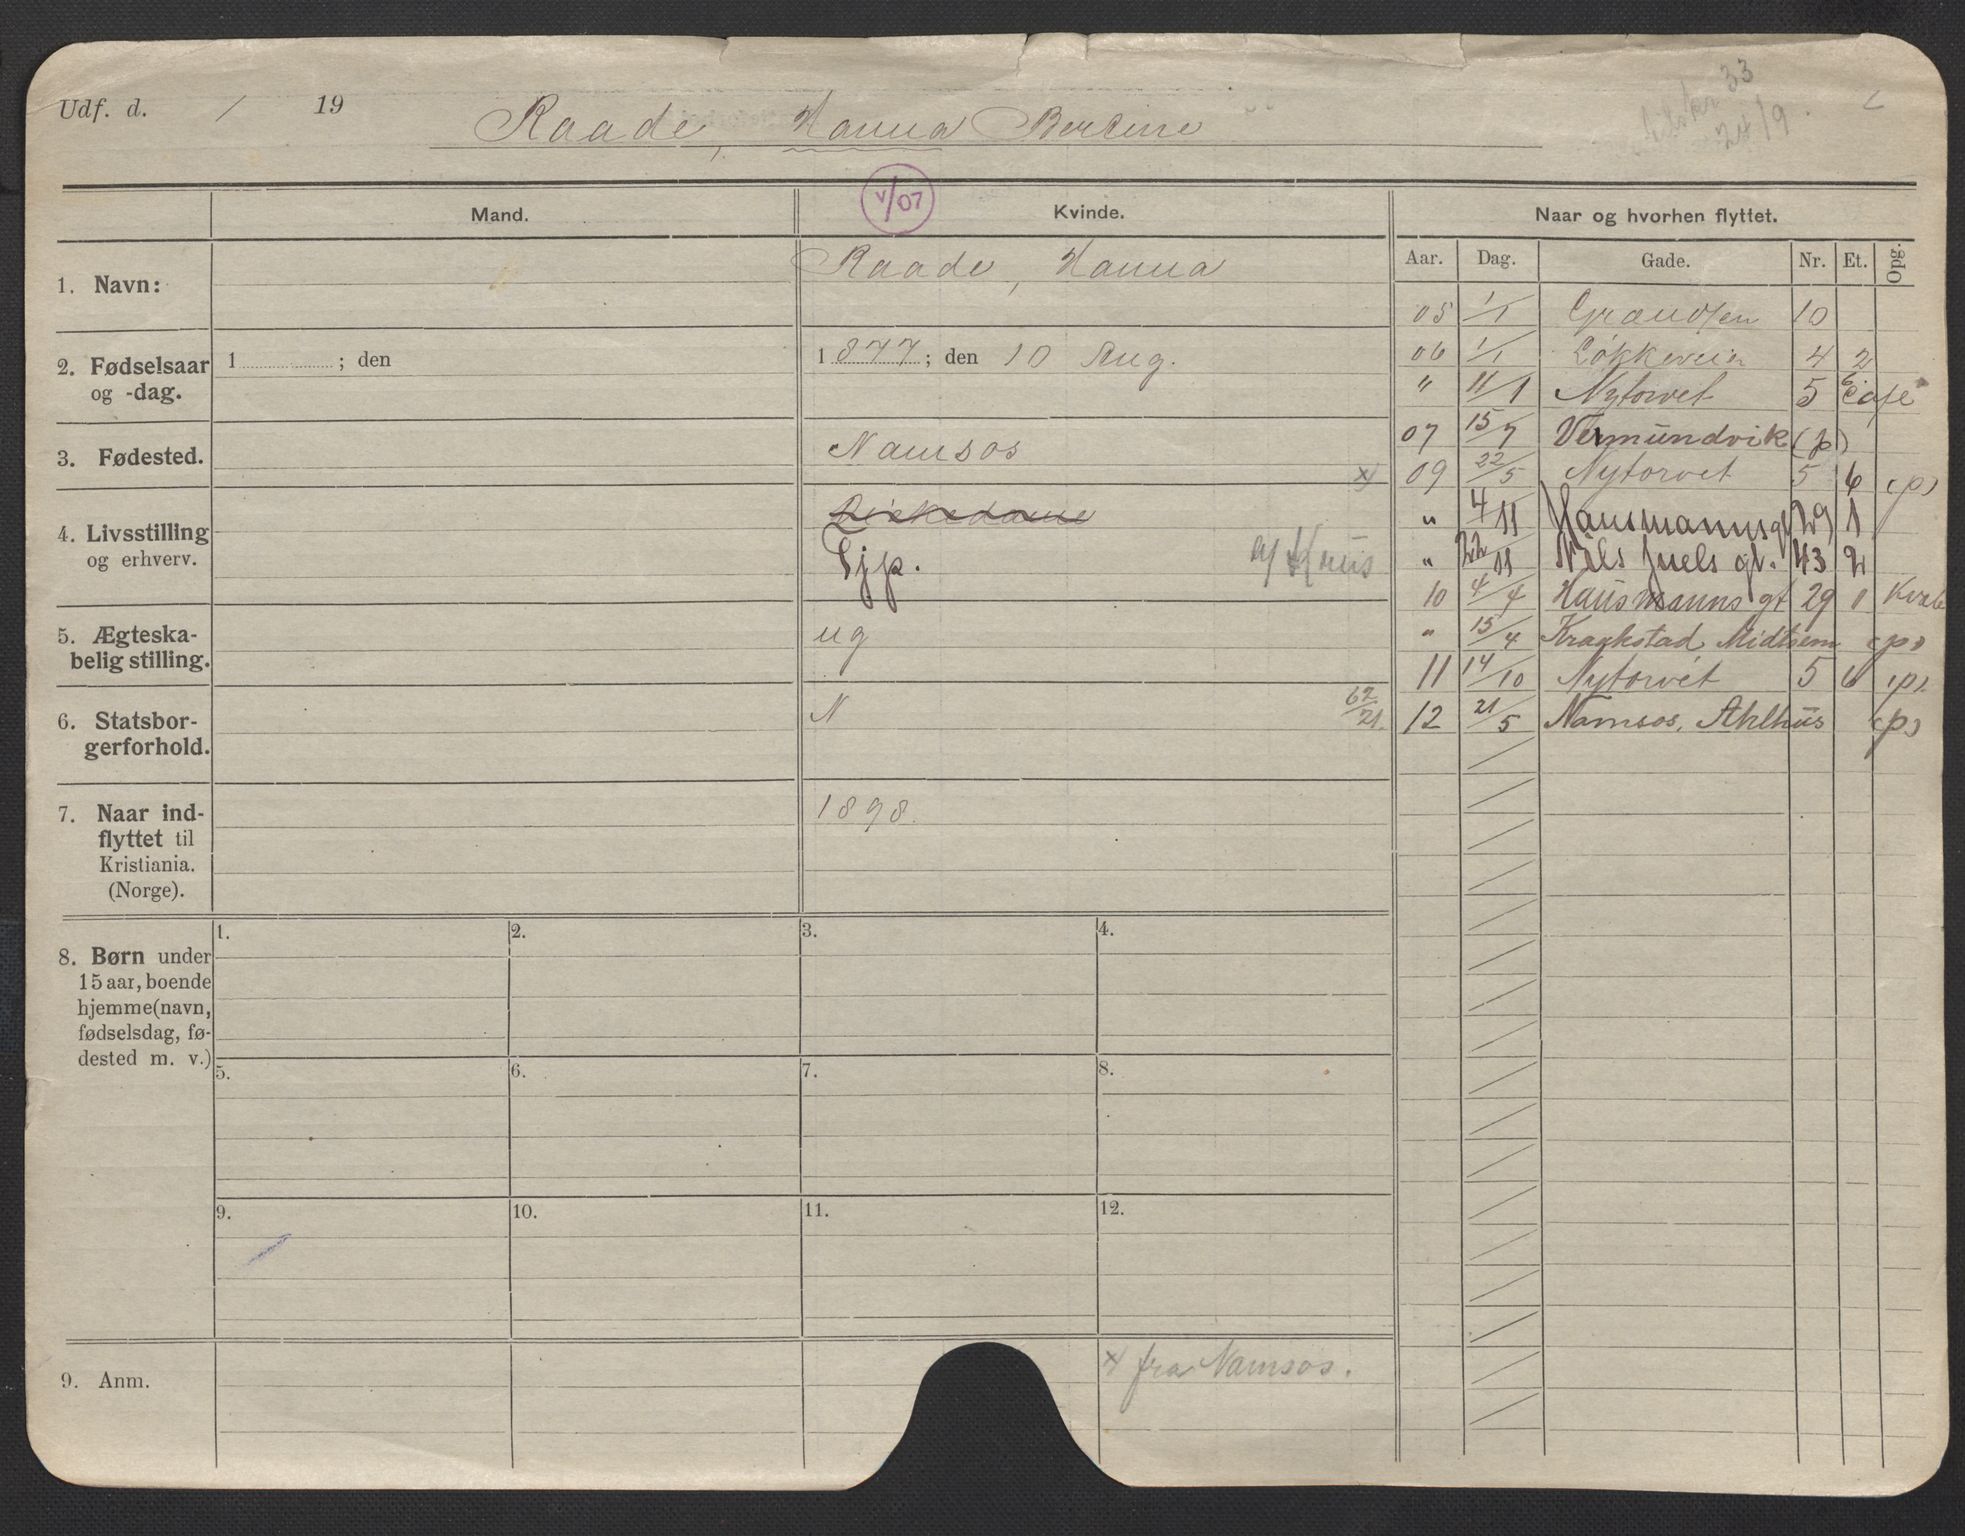 Udf. d. / 19
Raade, Hanna Bertine
33
24/9.
V/07
Mand.
Kvinde.
Naar og hvorhen flyttet.
Aar. Dag. Gade. Nr. Et. Opg.
1. Navn:
Raade, Hanna
2. Fødselsaar og -dag.
1 ; den
1877; den 10 Aug.
3. Fødested.
Namsos
4. Livsstilling og erhverv.
Tjp.
5. Ægteska-
belig stilling.
ug
6. Statsbor-
gerforhold.
N
62/21.
7. Naar ind-
flyttet til
Kristiania.
(Norge).
1898.
05 1/1 Grændsen 10
06 1/1 Løkkeveien 4 2
" 11/1 Nytorvet 5 6 Café
07 15/7 Vemundvik (p)
x) 09 22/5 Nytorvet 5 6 (p)
" 4/11 Hausmannsgt 29 1
" 22/11 Niels Juels gt. 43 2
10 4/4 Hausmanns gt 29 1
" 15/4 Kragkstad, (p)
11 14/10 Nytorvet 5 6 (p).
12 21/5 Namsos, (p)
8. Børn under
15 aar, boende
hjemme (navn,
fødselsdag, fø-
dested m. v.)
1. 2. 3. 4.
5. 6. 7. 8.
9. 10. 11. 12.
9. Anm.
x) fra Namsos.